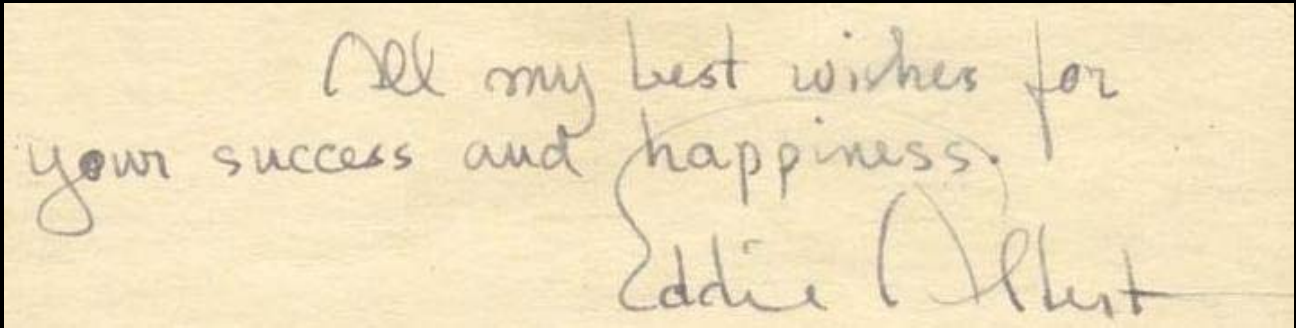 All my best wishes for
your success and happiness.
Eddie Albert